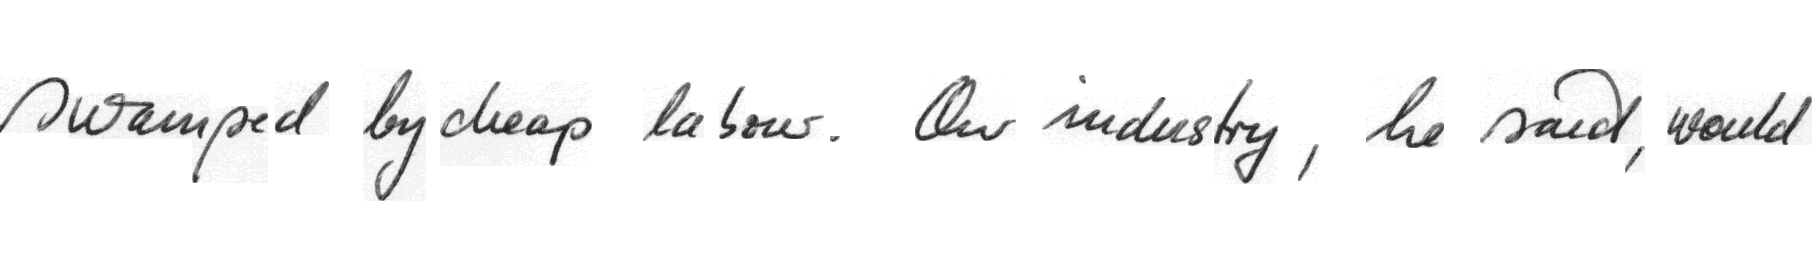 swamped by cheap labour. Our industry, he said, would